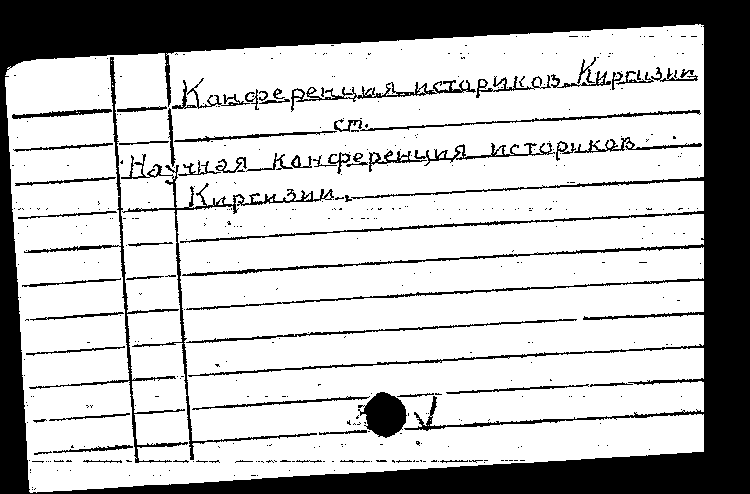 Конференция историков Киргизии
ст.
Научная конференция историков
Киргизии.